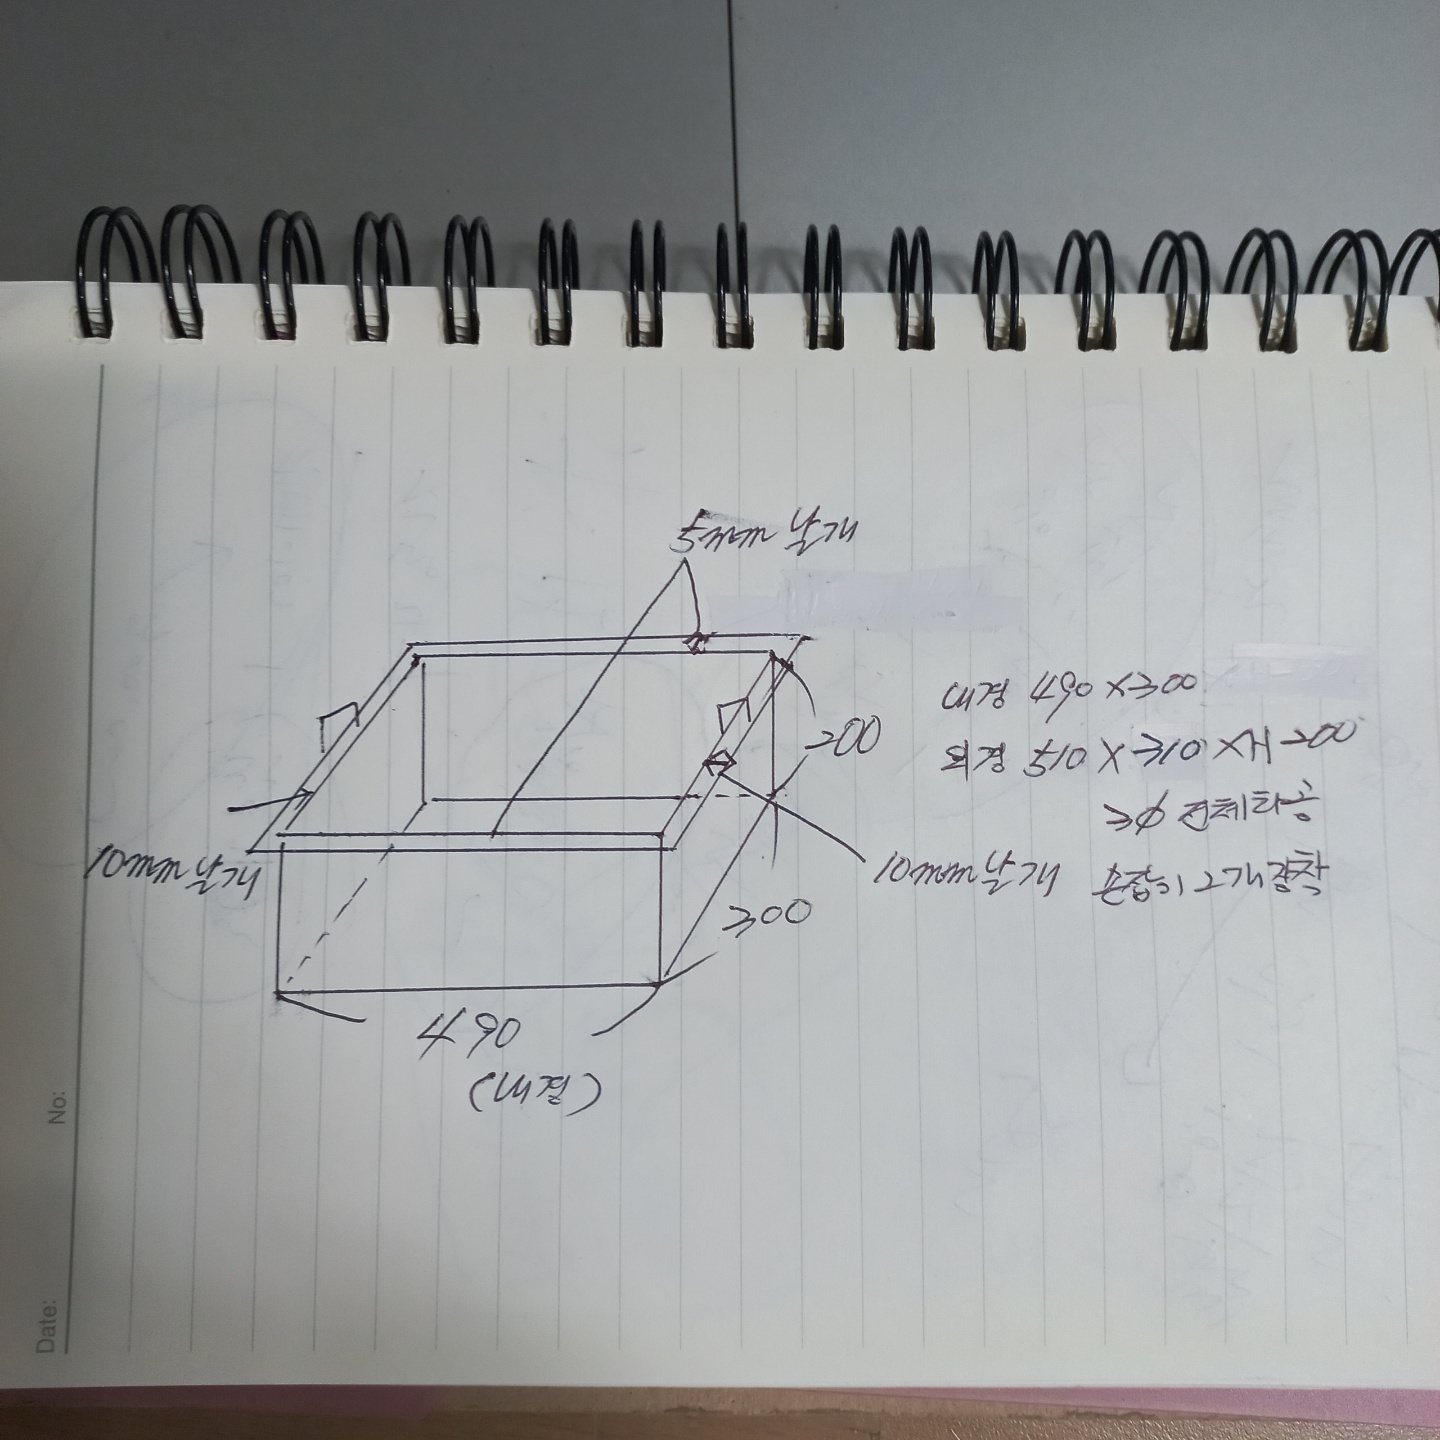 5mm 날개
내경 490×300
외경 510×310×H200
3∅ 전체타공
손잡이 2개 장착
200
10mm 날개
10mm 날개
300
490
(내경)
No:
Date: